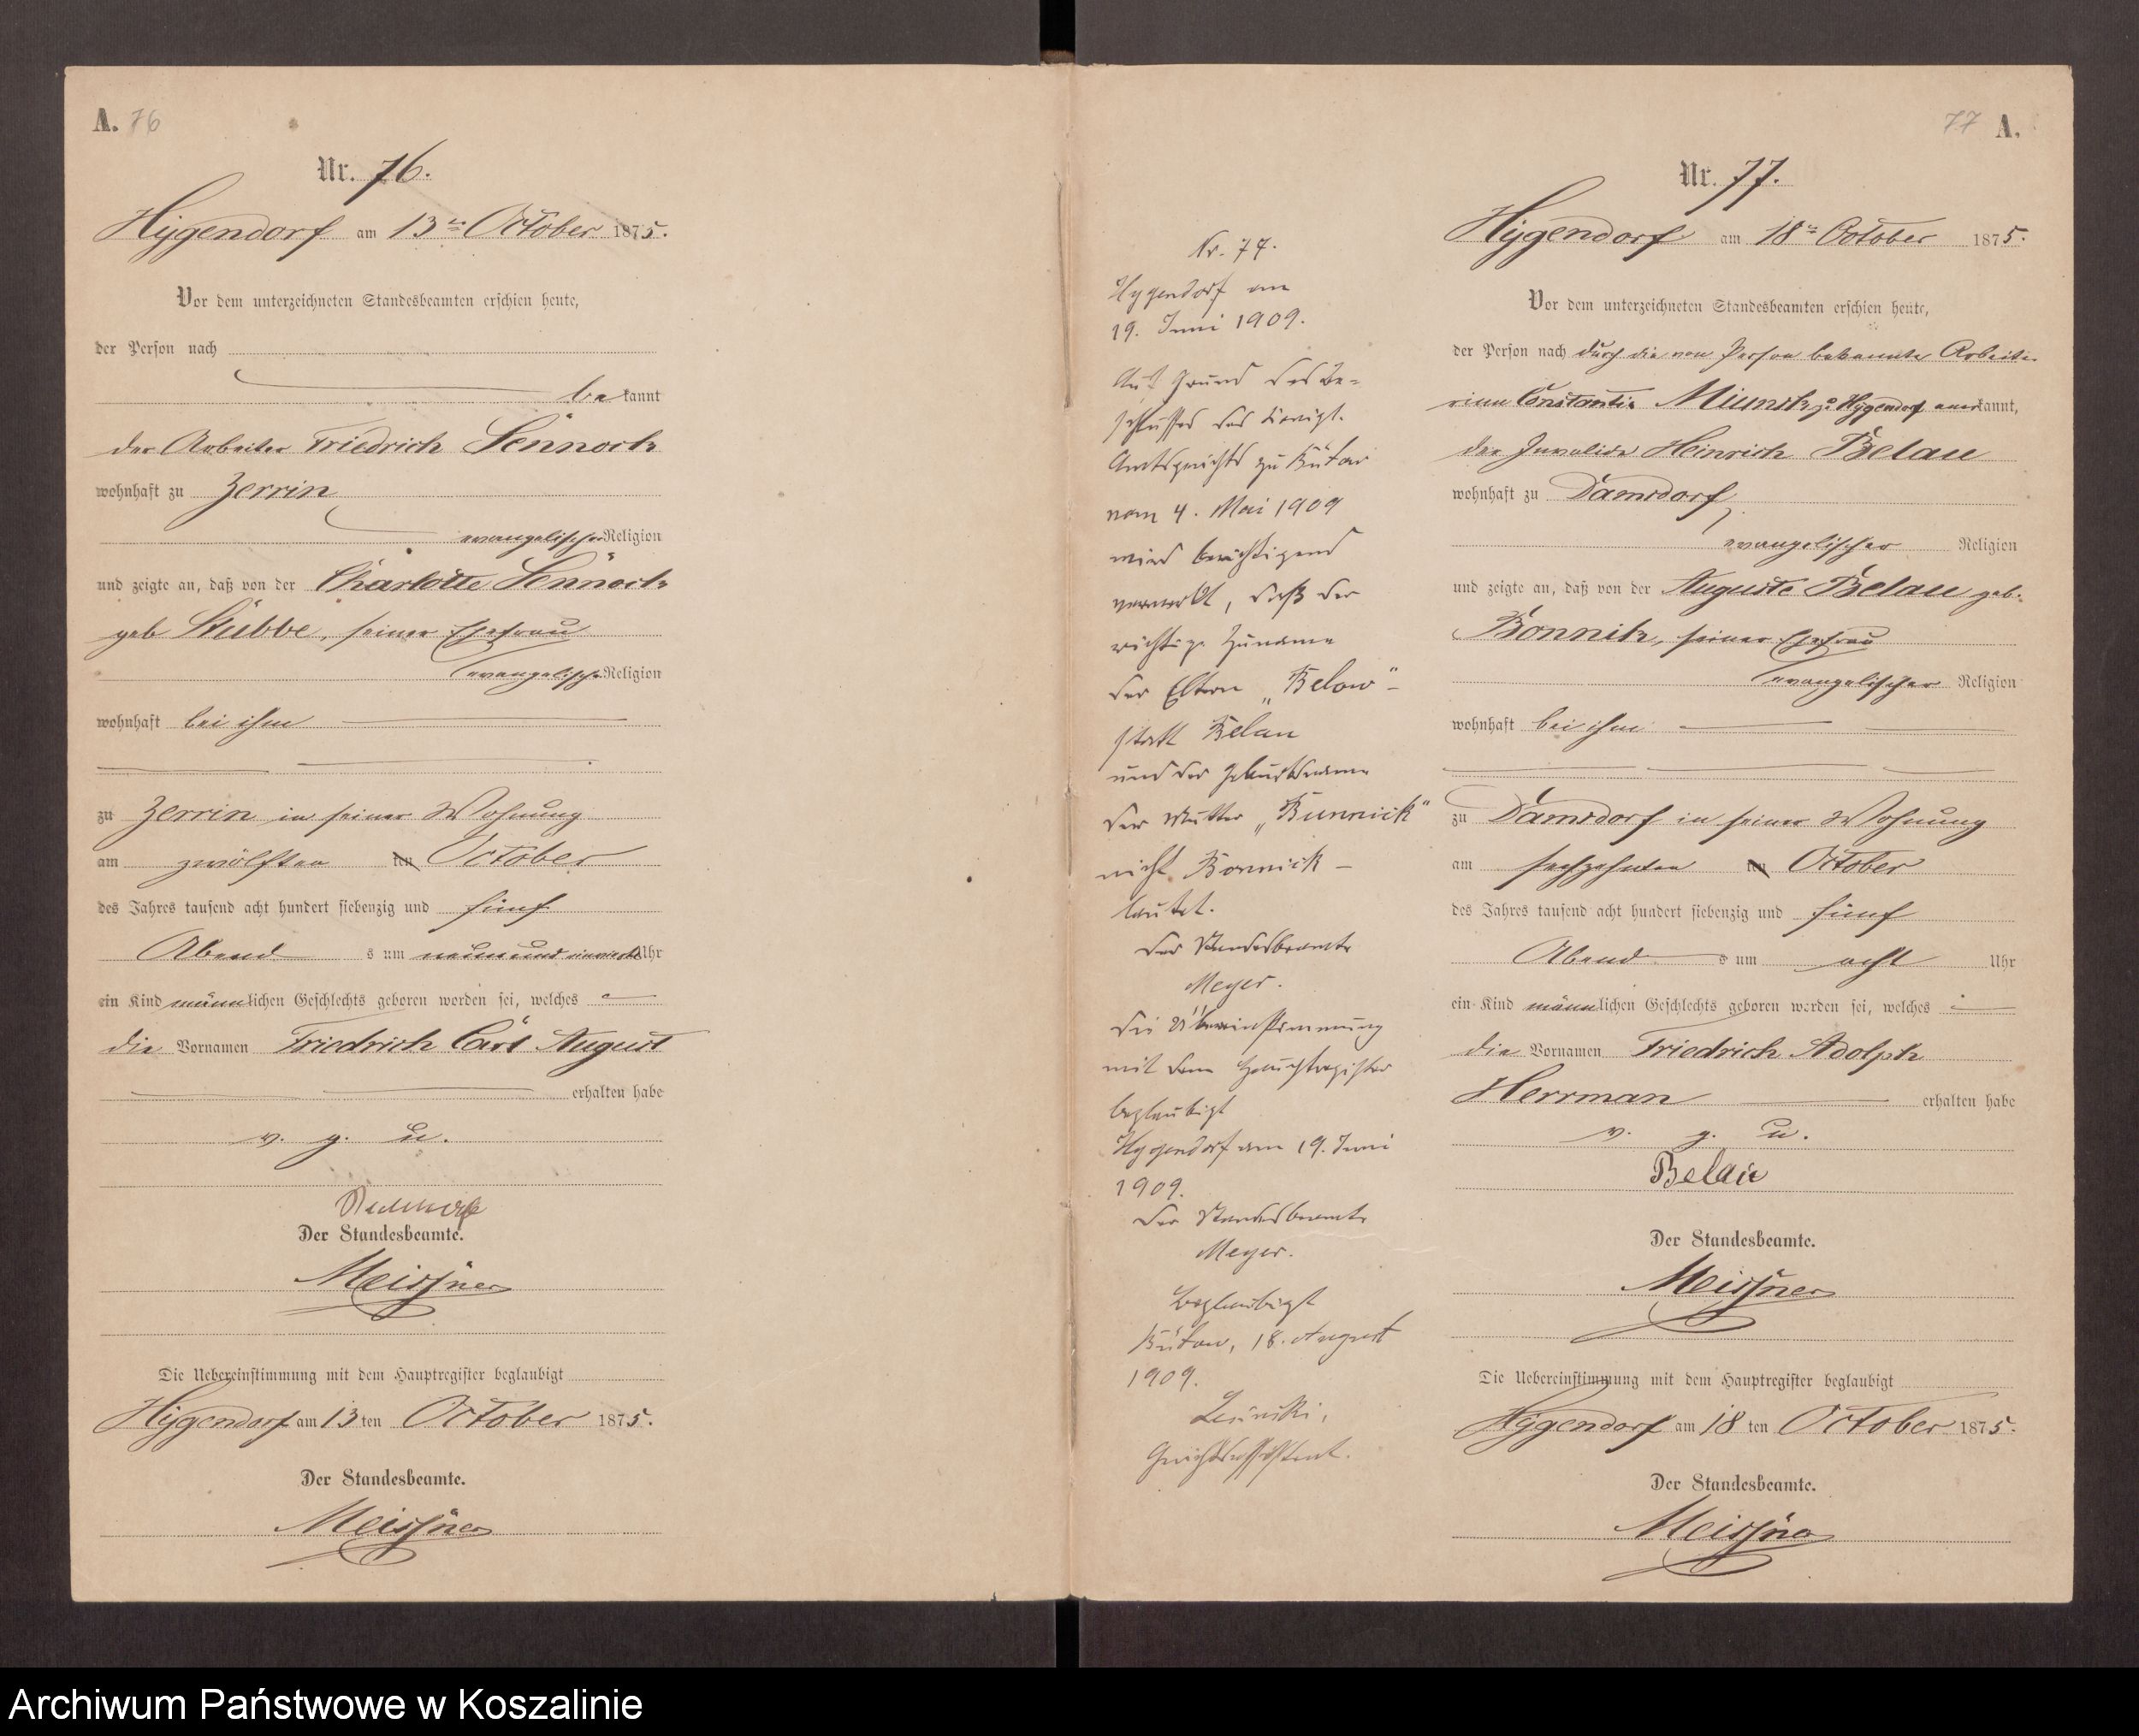 A. 76
Nr. 76.
Hygendorf am 13ten October 1875.
Vor dem unterzeichneten Standesbeamten erschien heute,
der Person nach
bekannt
der Arbeiter Friedrich Sennock
wohnhaft zu Zerrin
evangelischer Religion
und zeigte an, daß von der Charlotte Sennock
geb Stübbe, seiner Ehefrau
evangelischer Religion
wohnhaft bei ihm
zu Zerrin in seiner Wohnung
am zwölften ten October
des Jahres tausend acht hundert siebenzig und fünf
Abend s um neun und Uhr
ein Kind männlichen Geschlechts geboren worden sei, welches
die Vornamen Friedrich Carl August
erhalten habe
v. g. u.
Der Standesbeamte.
Meissner
Die Uebereinstimmung mit dem Hauptregister beglaubigt
Hygendorf am 13 ten October 1875.
Der Standesbeamte.
Meissner
Nr. 77.
Hygendorf am
19. Juni 1909.
Auf Grund des Be-
schlusses des Königl.
Amtsgerichts zu Bütow
vom 4. Mai 1909
wird berichtigend
vermerkt, daß der
richtige Zuname
der Eltern „Below"-
statt Belau
und der Geburtsname
der Mutter „Bunnick"
nicht Bonnick -
lautet.
Der Standesbeamte
Meyer.
Die Übereinstimmung
mit dem Hauptregister
beglaubigt
Hygendorf am 19. Juni
1909.
Der Standesbeamte
Meyer.
Beglaubigt
Bütow, 18. August
1909.
Gerichtsassistent.
77 A.
Nr. 77.
Hygendorf am 18ten October 1875.
Vor dem unterzeichneten Standesbeamten erschien heute,
der Person nach durch die von Person bekannte Arbeite-
rinn Constantia zu Hygendorf anerkannt,
der Invalide Heinrich Belau
wohnhaft zu Damsdorf
evangelischer Religion
und zeigte an, daß von der Auguste Belau geb.
Bonnik, seiner Ehefrau
evangelischer Religion
wohnhaft bei ihm
zu Damsdorf in seiner Wohnung
am sechzehnten ten October
des Jahres tausend acht hundert siebenzig und fünf
Abend s um acht Uhr
ein Kind männlichen Geschlechts geboren worden sei, welches
die Vornamen Friedrich Adolph
Herrman erhalten habe
v. g. u.
Belau
Der Standesbeamte.
Meissner
Die Uebereinstimmung mit dem Hauptregister beglaubigt
Hygendorf am 18 ten October 1875.
Der Standesbeamte.
Meissner
Archiwum Państwowe w Koszalinie